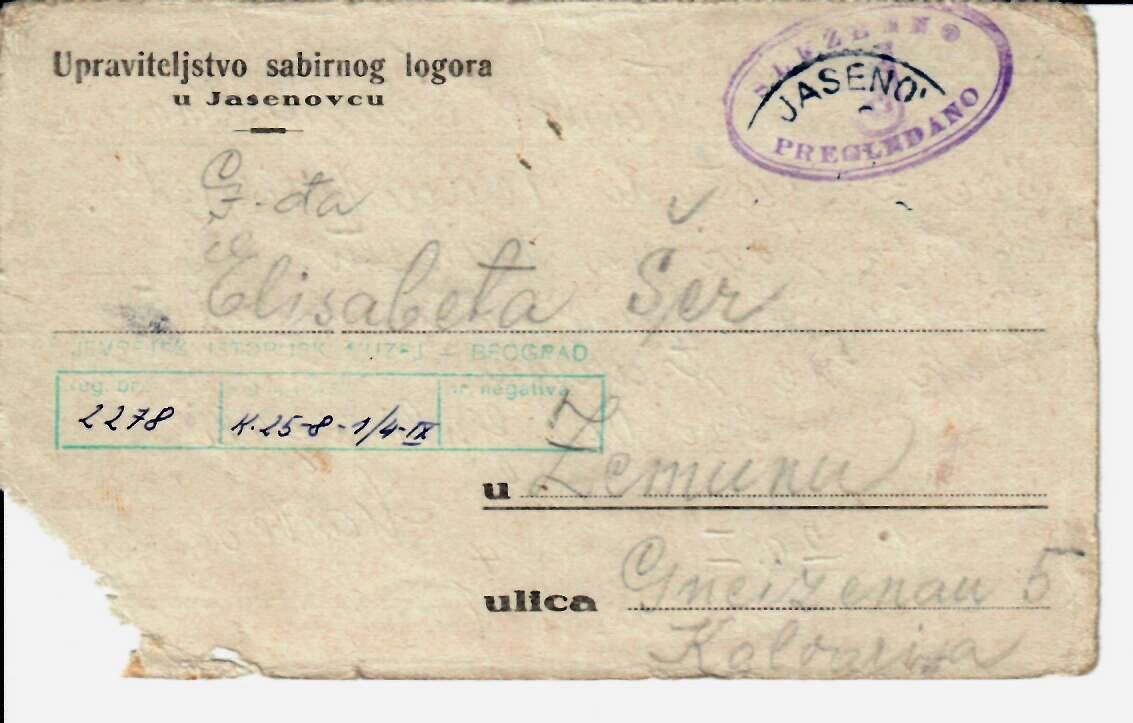 Upraviteljstvo sabirnog logora
u Jasenovcu
PREGLEDANO
G-đa
Elisabeta Šer
JEVREJSK ISTORIJSK MUZEJ — BEOGRAD
reg. br.
br. negativa
2278
K.25-8-1/4-IX
u Zemunu
ulica Gneizenau 5